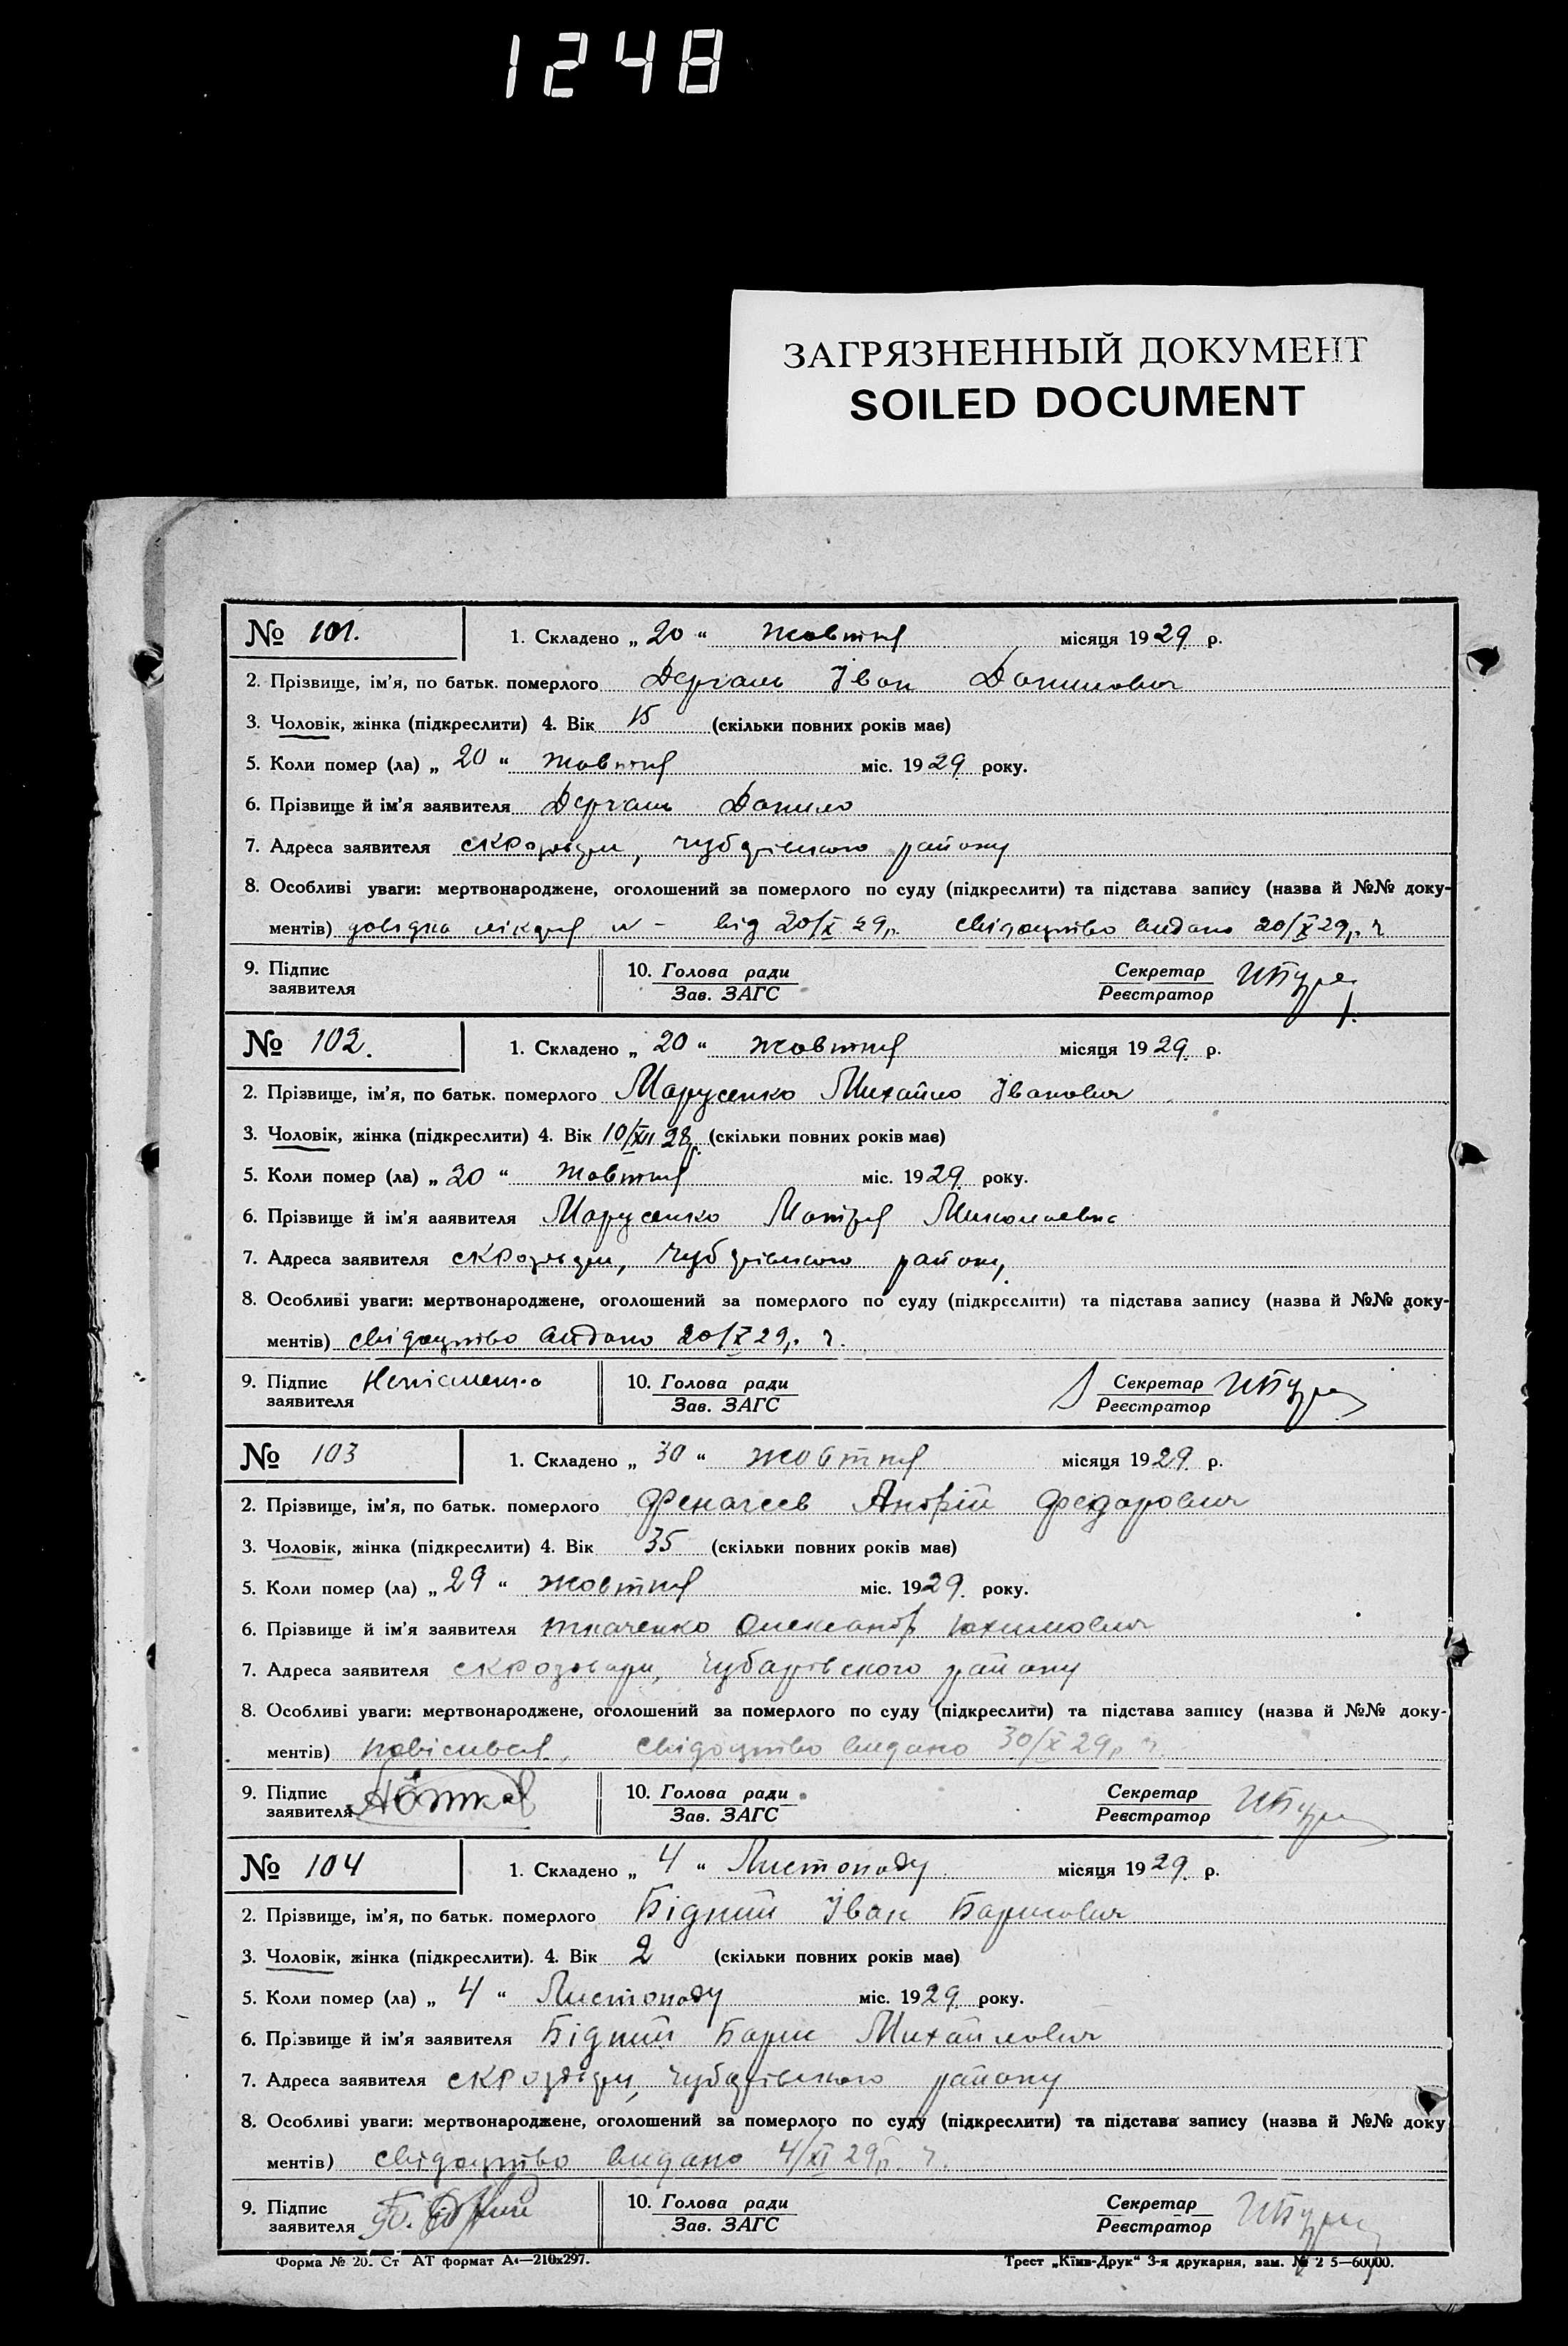 1248
ЗАГРЯЗНЕННЫЙ ДОКУМЕНТ
SOILED DOCUMENT
№ 101. 1. Складено „ 20 “ жовтня місяця 1929 р.
2. Прізвище, ім'я, по батьк. померлого Іван Данилович
3. Чоловік, жінка (підкреслити) 4. Вік 15 (скільки повних років має)
5. Коли помер (ла) „ 20 “ жовтня міс. 1929 року.
6. Прізвище й ім'я заявителя Данило
7. Адреса заявителя району
8. Особливі уваги: мертвонароджене, оголошений за померлого по суду (підкреслити) та підстава запису (назва й №№ доку-
ментів) довідка лікаря № – від 20/X 29р. свідоцтво видано 20/X 29р.
9. Підпис заявителя 10. Голова ради Зав. ЗАГС Секретар Реєстратор
№ 102. 1. Складено „ 20 “ жовтня місяця 1929 р.
2. Прізвище, ім'я, по батьк. померлого Марусенко Михайло Іванович
3. Чоловік, жінка (підкреслити) 4. Вік 10/XII 28р. (скільки повних років має)
5. Коли помер (ла) „ 20 “ жовтня міс. 1929 року.
6. Прізвище й ім'я ааявителя Марусенко Мотря
7. Адреса заявителя району
8. Особливі уваги: мертвонароджене, оголошений за померлого по суду (підкреслити) та підстава запису (назва й №№ доку-
ментів) свідоцтво видано 20/X 29р.
9. Підпис заявителя Неписьменна 10. Голова ради Зав. ЗАГС Секретар Реєстратор
№ 103 1. Складено „ 30 “ жовтня місяця 1929 р.
2. Прізвище, ім'я, по батьк. померлого Андрій Федорович
3. Чоловік, жінка (підкреслити) 4. Вік 35 (скільки повних років має)
5. Коли помер (ла) „ 29 “ жовтня міс. 1929 року.
6. Прізвище й ім'я заявителя Ткаченко Олександр Юхимович
7. Адреса заявителя Чубарівского району
8. Особливі уваги: мертвонароджене, оголошений за померлого по суду (підкреслити) та підстава запису (назва й №№ доку-
ментів) повісився, свідоцтво видано 30/X 29р.
9. Підпис заявителя 10. Голова ради Зав. ЗАГС Секретар Реєстратор
№ 104 1. Складено „ 4 “ Листопаду місяця 1929 р.
2. Прізвище, ім'я, по батьк. померлого Бідний Іван Борисович
3. Чоловік, жінка (підкреслити). 4. Вік 2 (скільки повних років має)
5. Коли помер (ла) „ 4 “ Листопаду міс. 1929 року.
6. Прізвище й ім'я заявителя Бідний Борис Михайлович
7. Адреса заявителя району
8. Особливі уваги: мертвонароджене, оголошений за померлого по суду (підкреслити) та підстава запису (назва й №№ доку
ментів) свідоцтво видано 4/XI 29р.
9. Підпис заявителя 10. Голова ради Зав. ЗАГС Секретар Реєстратор
Форма № 20. Ст АТ формат А4—210х297. Трест „Київ-Друк“ 3-я друкарня, зам. №